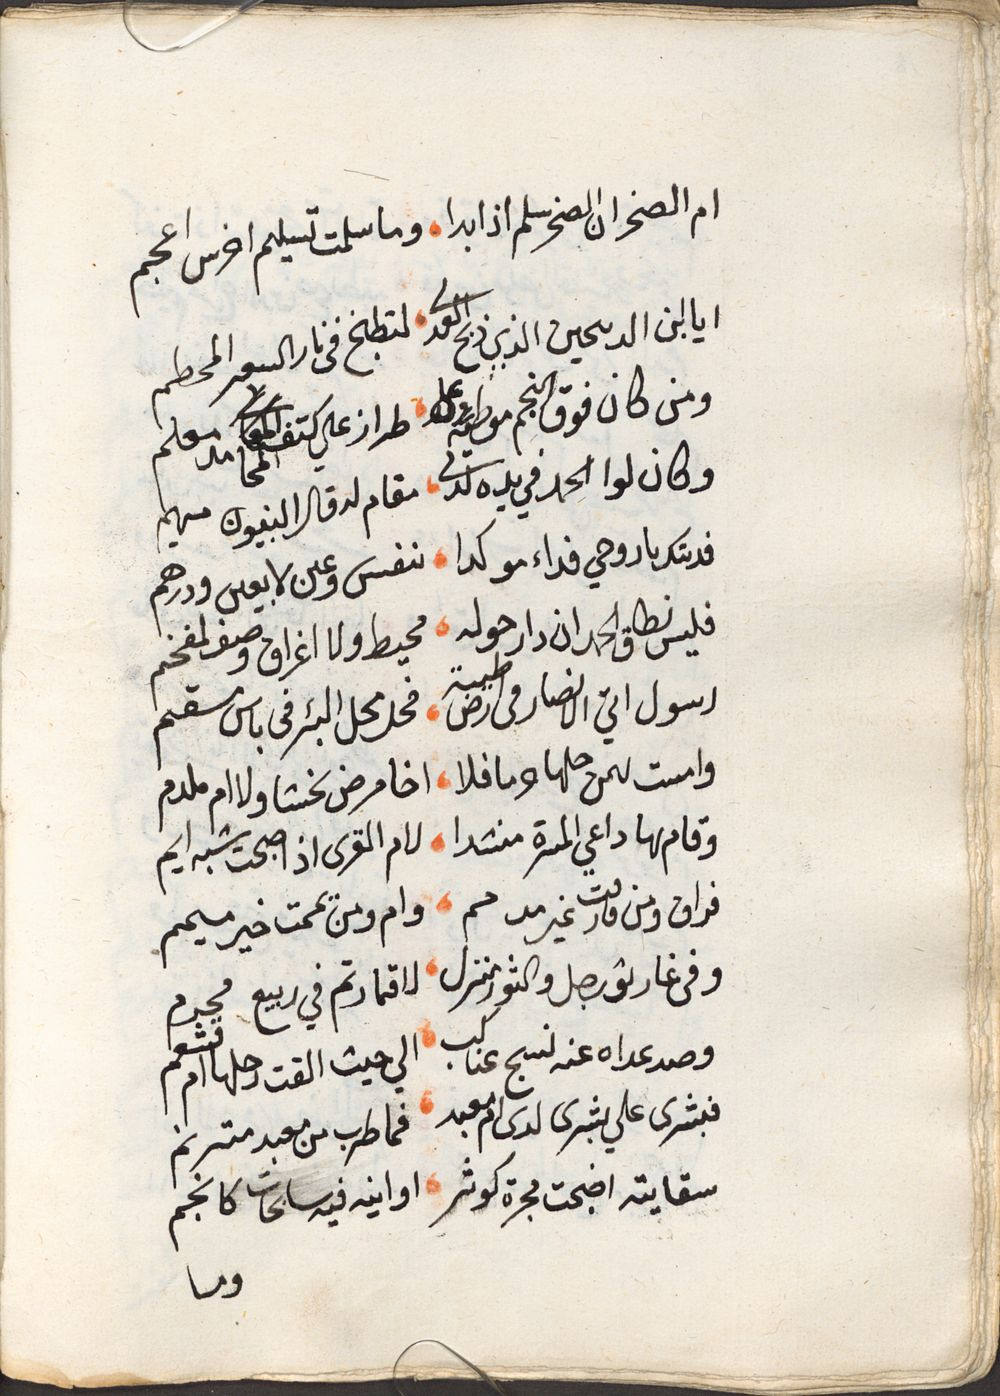 ام الصخر ان الصخر سلم اذ ابدا، وما سلمت تسليم اخرس اعجم
ايا ابن الدبيحين الذين ذبح العدى، لتطبخ في نار السعير المحطم
ومن كان فوق النجم موطئ، طراز علي كتف المحامد معلم
وكان لوا الحمد في يده لدى، مقام له قال النبيون
فديتك يا روحي فداء موكدا، بنفس وعين لا بعين ودرهم
فليس نطاق الحمد ان دار حوله، محيط ولا اغراق وصف لمفخم
رسول اتي الانصار في ارض طيبة، محل البئر في باس سقم
وامست بمن حلها وما فلا، اخا مرض تخشا ولا ام ملدم
وقام بها داعي المسرة منشدا، لام القرى اذ اصبحت شبه ايم
فراق ومن فارقت غير مدمم، وام ومن يممت خير ميمم
وفي غار ثور حل والثور منزل، لاقمار تم في ربيع محرم
وصد عداه عنه نسج عناكب، الي حيث القت رحلها ام قشعم
فبشرى علي بشرى لدى ام معبد، فما طرب من معبد مترنم
سقايته اضحت مجرة كوثر، اوانيه فيه سابحات كانجم
وما